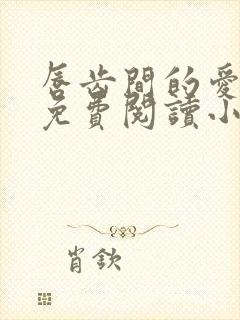 唇齿間的愛
免費閱讀小
肖欽